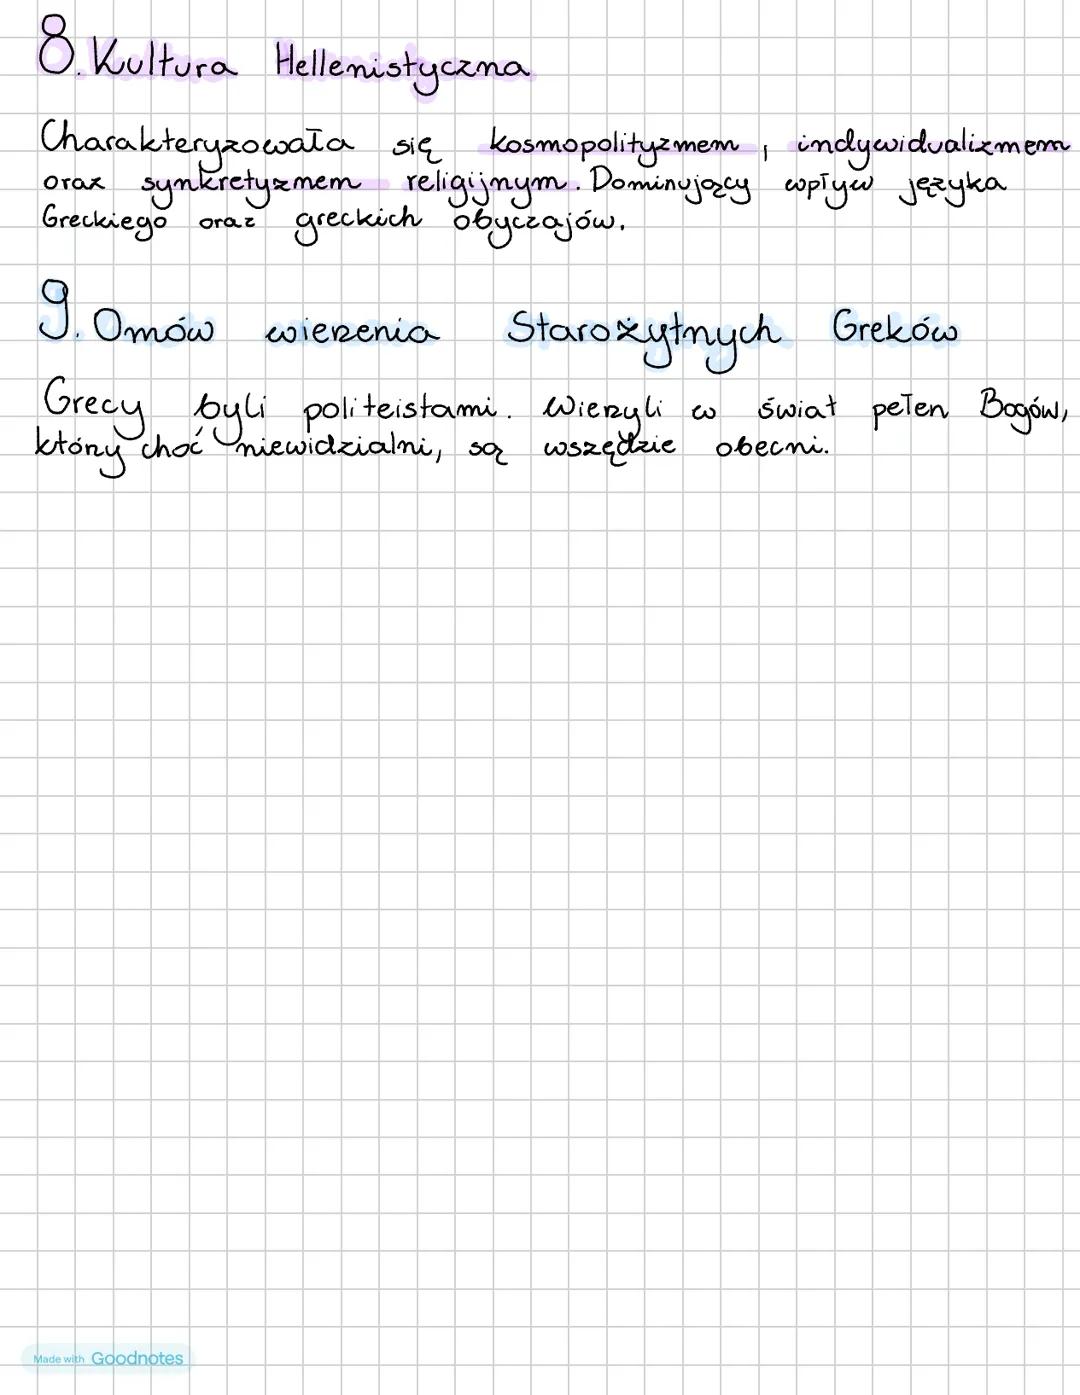 8. Kultura Hellenistyczna
Charakteryzowała się kosmopolityzmem, indywidualizmem
oraz synkretyzmem religijnym. Dominujący wpływ języka
Greckiego oraz greckich obyczajów.
9. Omów wierzenia Starożytnych Greków
Grecy byli politeistami. Wierzyli w świat pełen Bogów,
którzy choć niewidzialni, są wszędzie obecni.
Made with Goodnotes